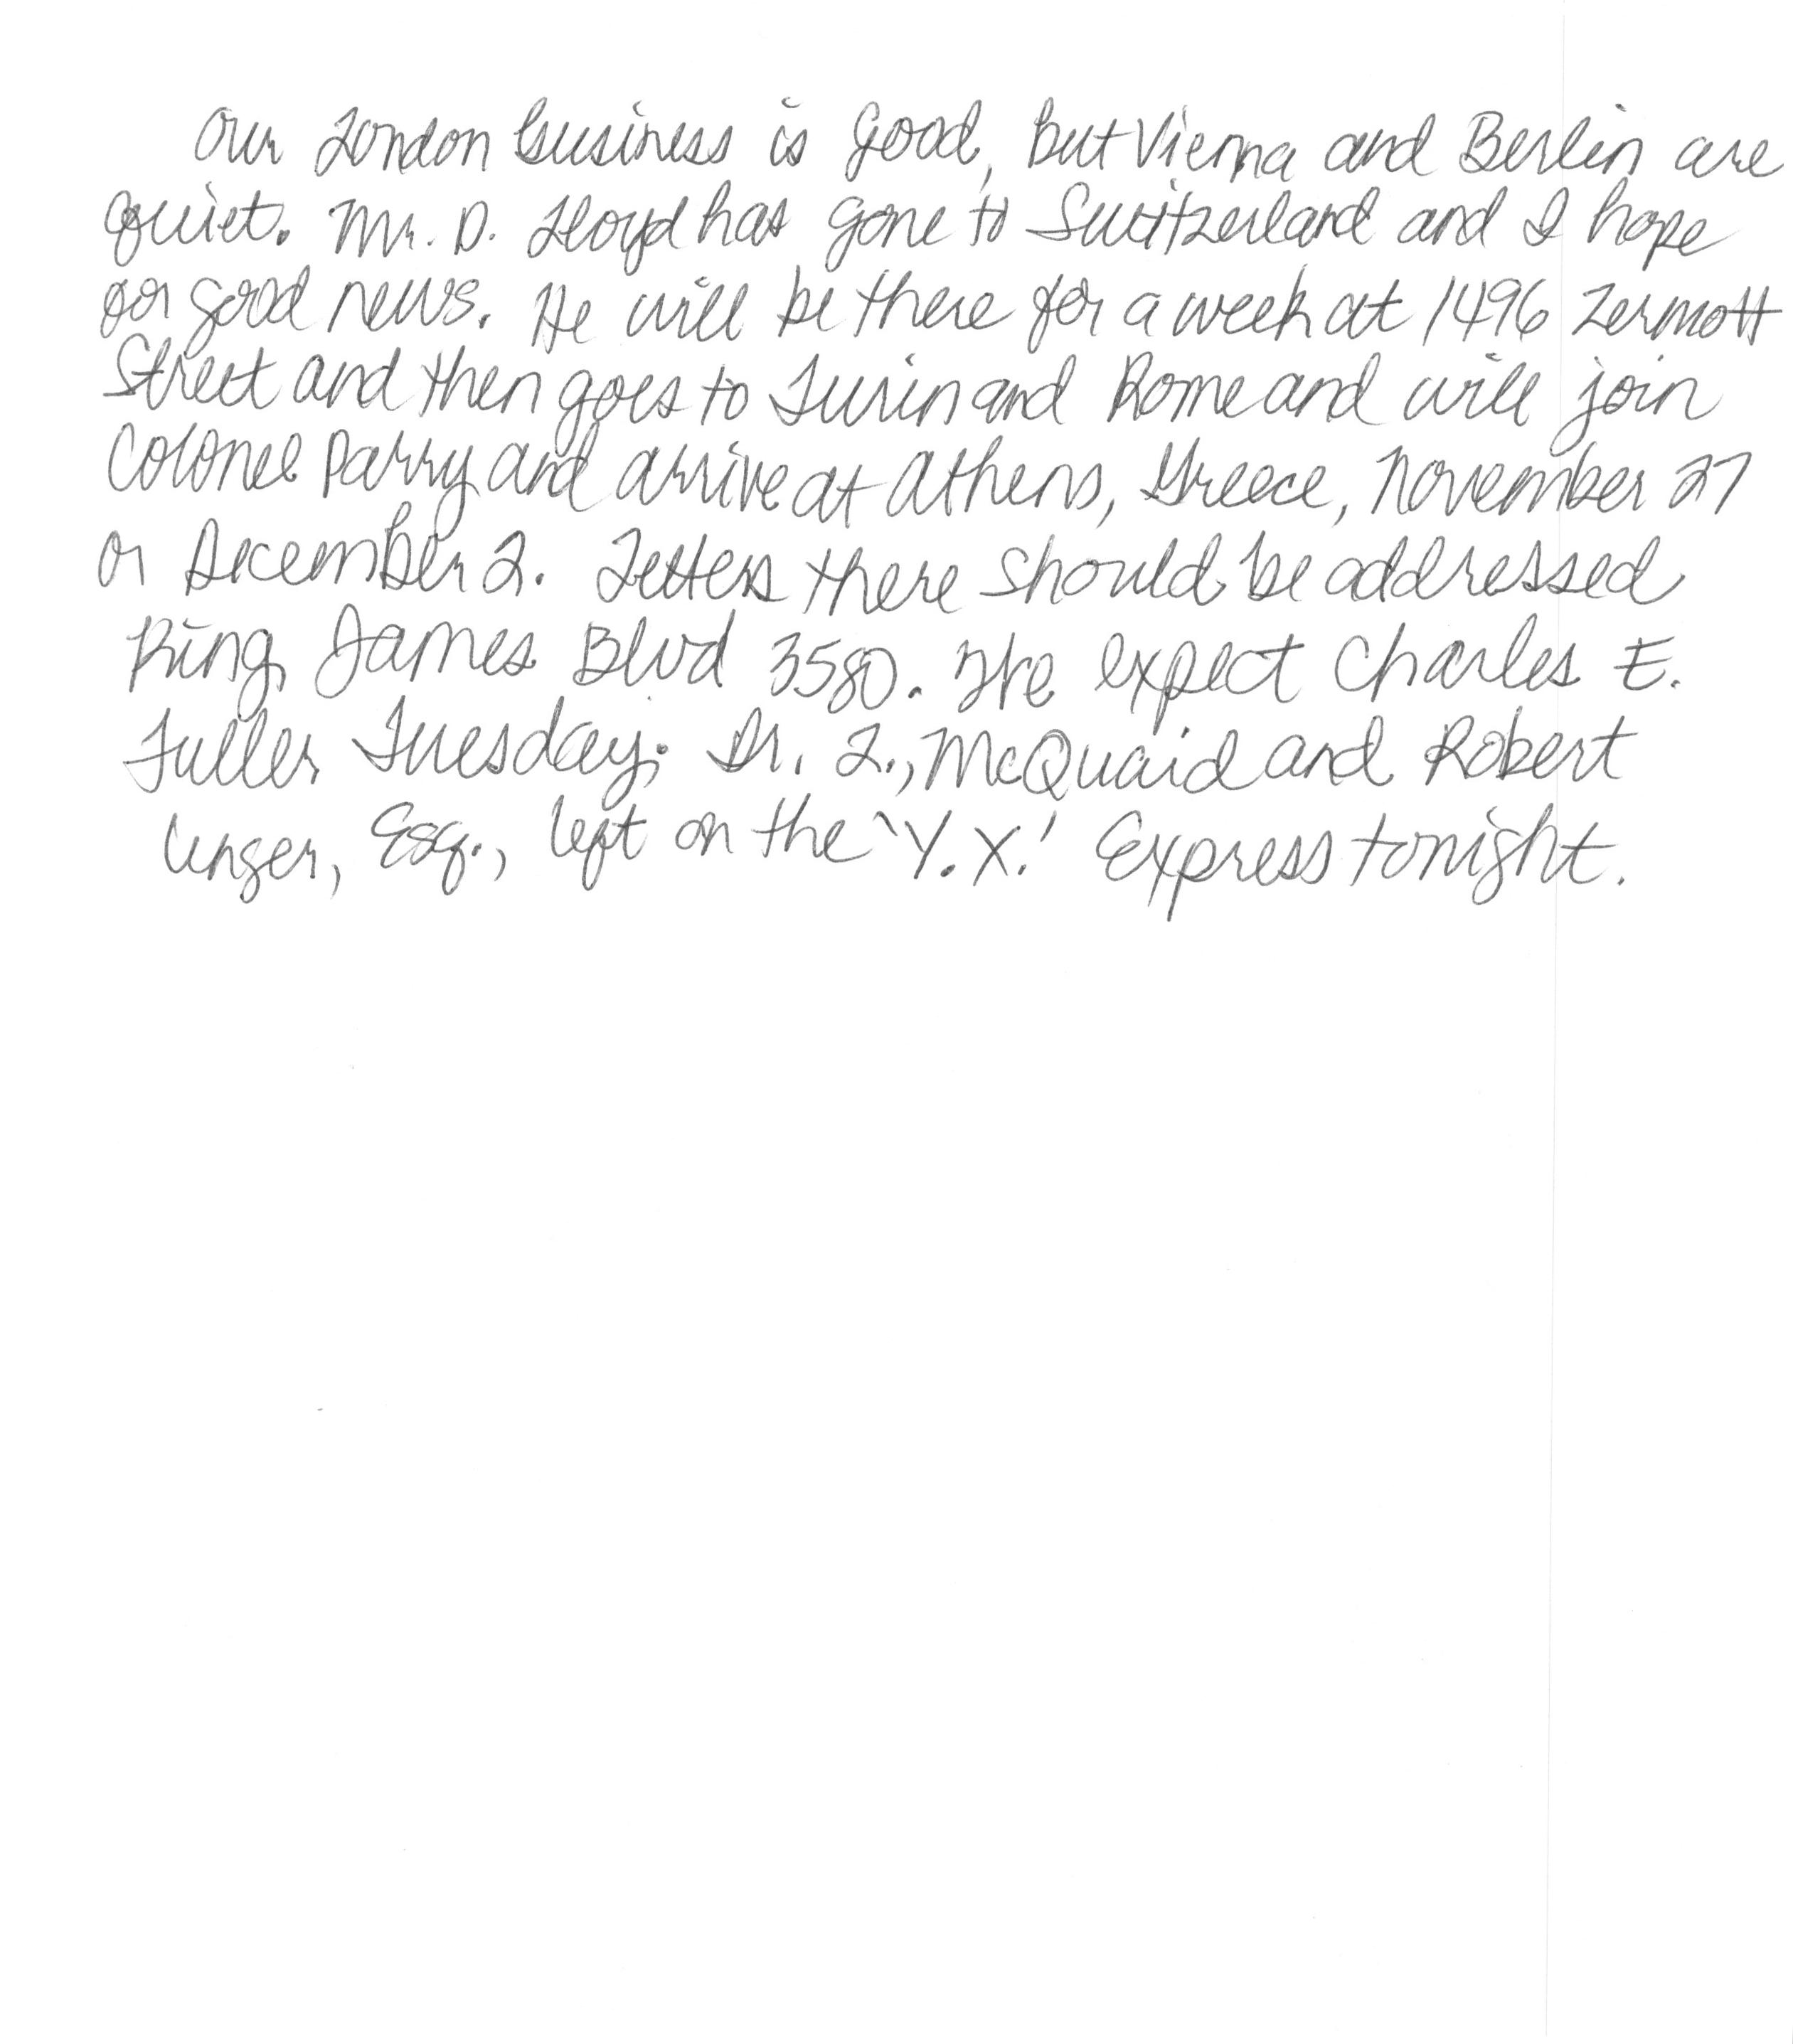 Our London business is good, but Vienna and Berlin are
quiet. Mr. D. Lloyd has gone to Switzerland and I hope
for good news. He will be there for a week at 1496 Zermott
Street and then goes to Turin and Rome and will join
Colonel Parry and arrive at Athens, Greece, November 27
or December 2. Letters there should be addressed
King James Blvd 3580. We expect Charles E.
Fuller Tuesday. Dr. L., McQuaid and Robert
Unger, Esq., left on the 'Y.X.' Express tonight.